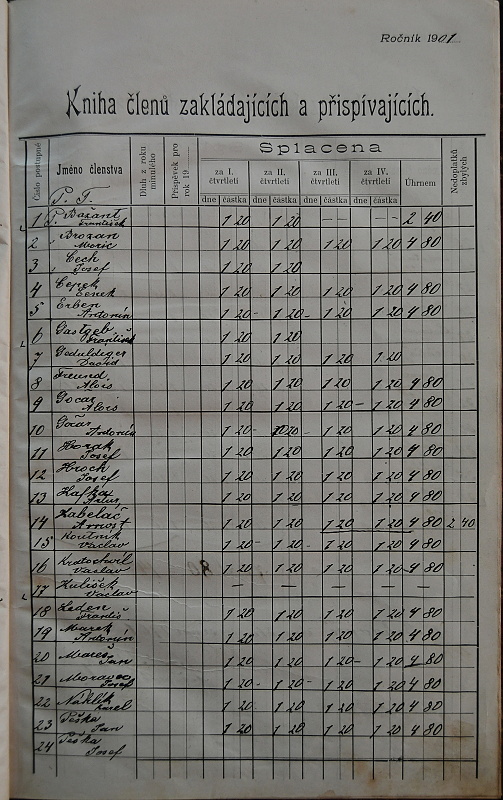 Ročník 1901
Kniha členů zakládajících a přispívajících.
Číslo postupné Jméno členstva Dluh z roku minulého Příspěvek pro rok 19 Splacena Nedoplatků zbylých
za I. čtvrtletí za II. čtvrtletí za III. čtvrtletí za IV. čtvrtletí Úhrnem
dne částka dne částka dne částka dne částka
P. T.
1 P. Bažant František 1 20 1 20 — — — — 2 40
2 Brožan Moric 1 20 1 20 1 20 1 20 4 80
3 Čech Josef 1 20 1 20
4 Čepek Čeněk 1 20 1 20 1 20 1 20 4 80
5 Erben Antonín 1 20 – 1 20 – 1 20 1 20 4 80
6 Gastgeb František 1 20 1 20
7 Geduldiger David 1 20 1 20 1 20 1 20
8 Freund Alois 1 20 1 20 1 20 1 20 4 80
9 Gočár Alois 1 20 1 20 1 20 – 1 20 4 80
10 Antonín 1 20 – 1 20 – 1 20 1 20 4 80
11 Horák Josef 1 20 1 20 1 20 1 20 4 80
12 Hroch Josef 1 20 1 20 1 20 1 20 4 80
13 Kafka 1 20 1 20 1 20 1 20 4 80
14 Kabeláč Arnošt 1 20 1 20 1 20 1 20 4 80 2 40
15 Koutník Václav 1 20 – 1 20 – 1 20 1 20 4 80
16 Kratochvíl Václav 1 20 1 20 1 20 1 20 4 80
17 Kulíšek Václav — — — —
18 Leden Františ. 1 20 1 20 1 20 1 20 4 80
19 Marek Antonín 1 20 1 20 1 20 1 20 4 80
20 Mareš Jan 1 20 1 20 1 20 – 1 20 4 80
21 Moravec Josef 1 20 – 1 20 – 1 20 1 20 4 80
22 Náhlík Karel 1 20 1 20 1 20 1 20 4 80
23 Peška Jan 1 20 1 20 1 20 1 20 4 80
24 Peška Josef